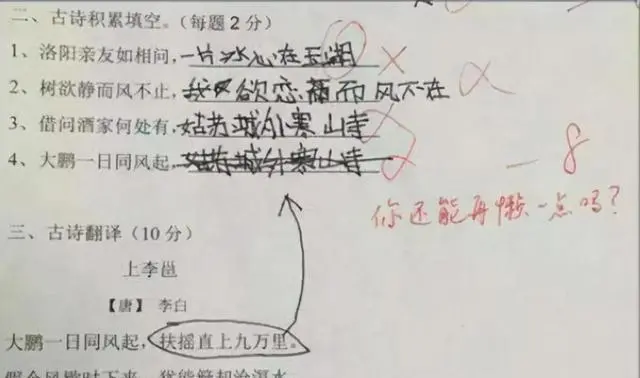 二、古诗积累填空。(每题2分)
1、洛阳亲友如相问,一片冰心在玉湖
2、树欲静而风不止,我欲恋而风不在
3、借问酒家何处有,姑苏城外寒山寺
4、大鹏一日同风起,姑苏城外寒山寺
-8
你还能再懒一点吗?
三、古诗翻译(10分)
上李邕
【唐】 李白
大鹏一日同风起,扶摇直上九万里。
假令风歇时下来,犹能簸却沧溟水